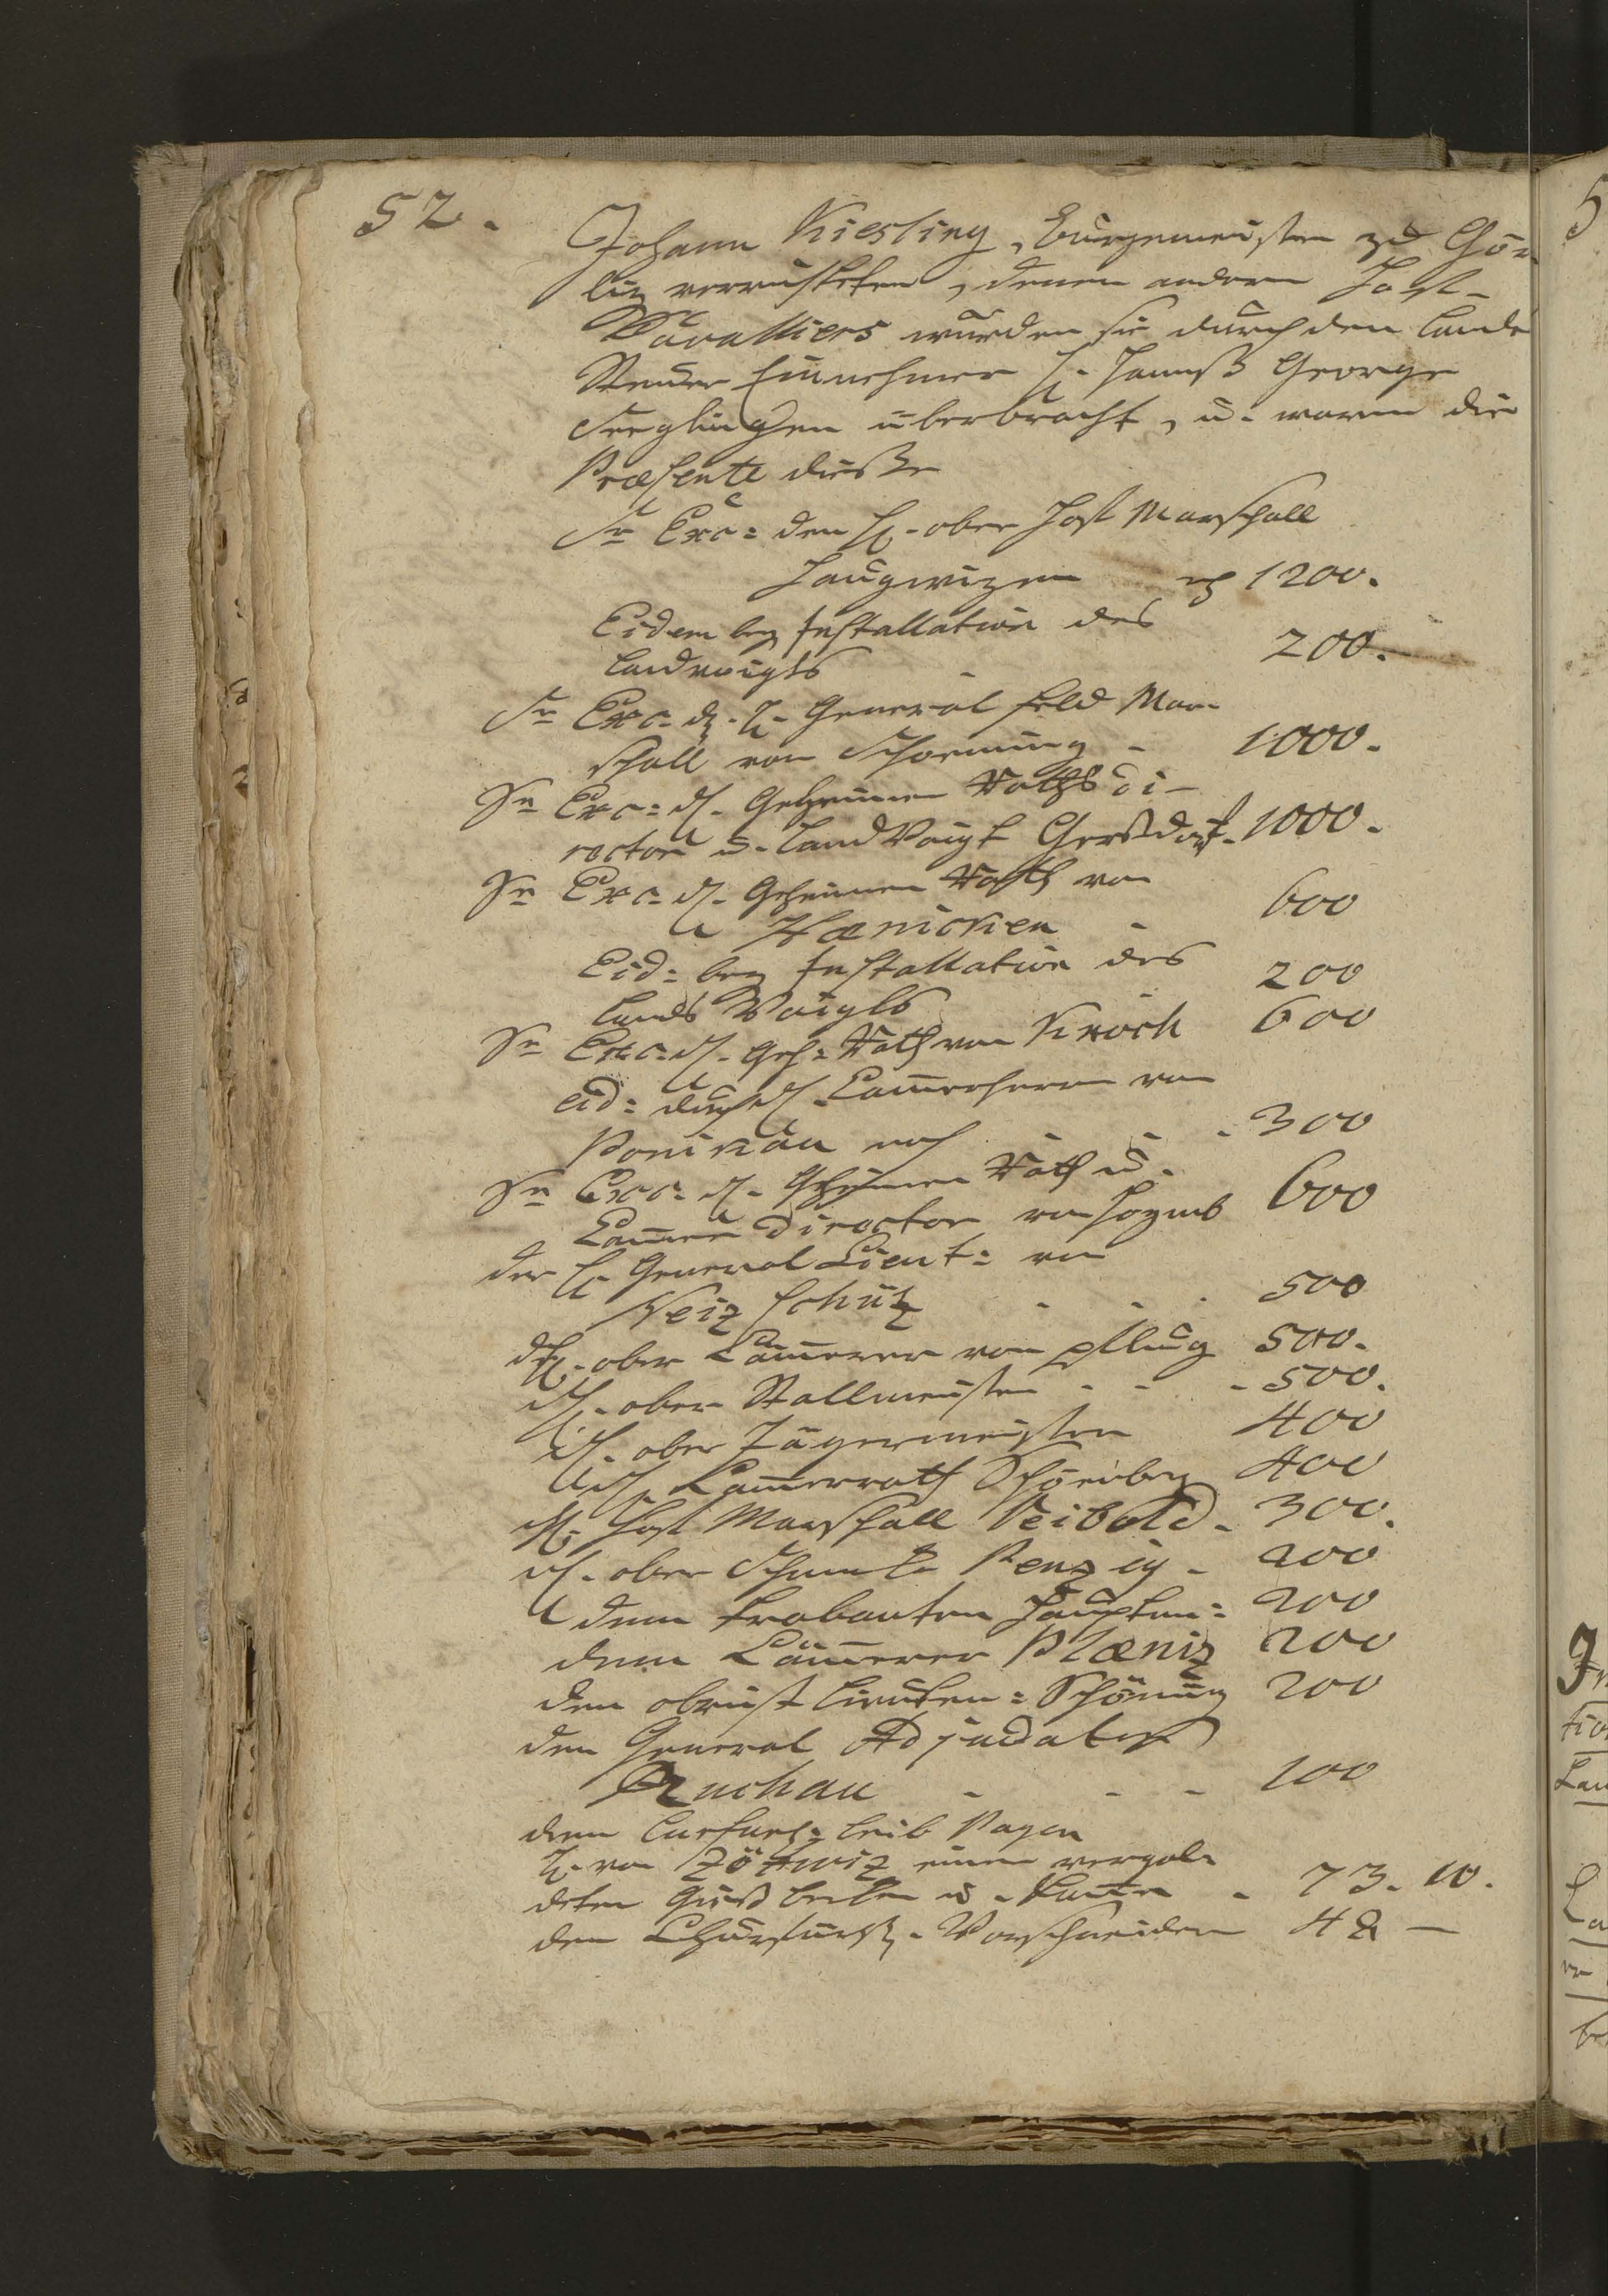 52.
Johann Kiesling, Burgemeister zu Gör-
liz verrichteten, denen andern Hoff-
Cavalliers wurden sie durch den Landes
Steuer Einnehmer H. Hannß George
überbracht, u. waren die
Præsente dieße
Sr Exc: dem H. ober Hoff Marschall
Haugwizen rh 1200.
Eidem bey Installation des
Landvoigts - 200.
Sr Exc. d. H. General Feld Mar-
schall von Schoenning - 1000.
Sr Exc: dH. Geheimen Raths Di-
rector u. Land Voigt Gersdorf. 1000.
Sr Exc. dH. Geheimen Rath von
Hænicken - 600
Eid: bey Installation des
Lands Voigts 200
Sr Exc. dH. Geh: Rath von Knoch 600
Eid: durch H. Cammerherrn von
Ponikau noch - - - 300
Sr Exc. dH. Geheimen Rath u.
Cammer Director von Hoymb 600
der H. General Lieut: von
Neizschüz - - - 500
dH. ober Cämmerer von Pflug 500.
dH. ober Stallmeister - - - 500.
dH. ober Jägermeister 400
dH. Cammerrath Schönberg 400
dH. Hoff Marschall Reibold - 300.
dH. ober Schenke Penzig - 200
dem Trabanten Hauptm: 200
dem Cämmerer Plæniz 200
dem obrist Lieuten: Schöning 200
dem General Adjudaten
- - - 100
dem Curfürs: Leib Pagen
H. von einen vergol-
deten Gieß becken u. Kanne - 73. 10.
dem Churfürstl. Vorschneider 48 —